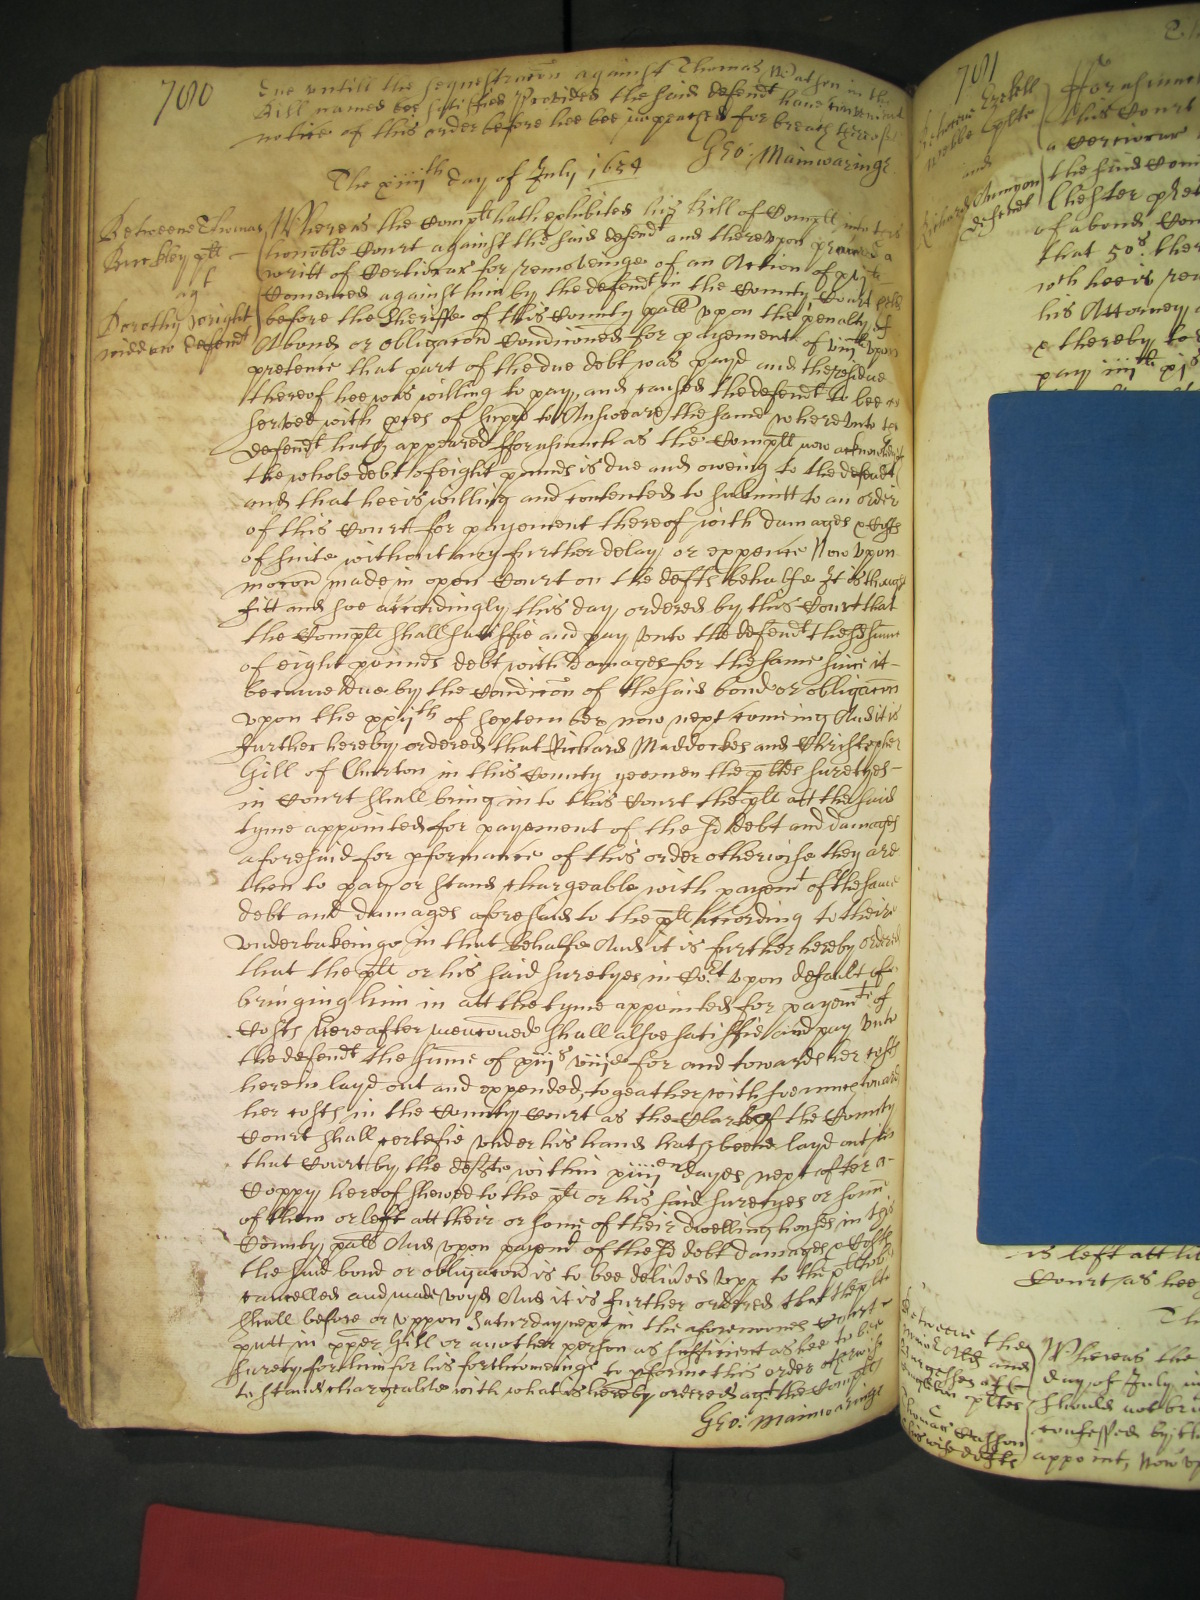 700
due untill the sequestracon against Thomas in the
Bill named bee satisfied Provided the said defendt have convenient
notice of this order before hee bee impeached for breach hereof
Geo: Mainwaringe
The xiiijth day of July 1654
Betweene Thomas
Buckley plt
agt
Dorothy Wright
widdow defendt
Whereas the Complt hath exhibited his Bill of Complt into this
honoble Court against the said defendt and thereupon prayed a
writt of Certiorar for removeinge of an Action of
Comenced against him by the defendt in the County Court
before the Sheriffe of this County palt upon the penalty of
A bond or obligacon Condiconed for payement of viijli upon
pretence that part of the due debt was payd and the residue
thereof hee was willing to pay, and caused the defendt to bee
served with pces of Suppa to Answeare the same whereunto the
defendt hath appeared fforasmuch as the Complt now acknowledgeth
the whole debt of eight pounds is due and oweing to the defendt
and that hee is willing and contented to submitt to an order
of this Court for payement thereof with damages & costs
of suite without any further delay or expence Now upon
mocon made in open Court on the defts behalfe It is thought
fitt and soe accordingly this day ordered by this Court that
the Complt shall satisfie and pay unto the defendt the sd summe
of eight pounds debt with damages for the same since it
became due by the Condicon of the said bond or obligacon
upon the xxijth of September now next comeing And it is
further hereby ordered that Richard Maddockes and Christopher
Gill of Churton in this County yeomen the pltes suretyes
in Court shall bring in to this Court the plt att the said
tyme appointed for payement of the sd debt and damages
aforesaid for pformance of this order otherwise they are
then to pay or stand chargeable with payemt of the same
debt and damages aforesaid to the plt According to their
undertakeinge in that behalfe And it is further hereby ordered
that the plt or his said suretyes in Cort upon default of
bringing him in att the tyme appointed for payemt of
Costs hereafter mencioned shall alsoe satisfie and pay unto
the defendt the summe of xiijs viijd for and towards her costs
herein layd out and expended, togeather with soe much toward
her costs in the County Court as the Clarke of the County
Court shall certefie under his hand hath beene layd out in
that Court by the defte within xiiijen dayes next after a
Coppy hereof shewed to the plt or his said suretyes or some
of them or left att their or some of their dwelling houses in this
County palt And upon payemt of the sd debt damages & costs
the said bond or obligacon is to bee delived upp to the plt to be
cancelled and made voyd And it is further ordered that the plte
shall before or uppon Saturday next in the aforenoone Court
putt in xper Gill or another person as sufficient as hee to bee
surety for him for his forthcomeinge to pforme this order otherwise
to stand chargeable with what is hereby ordered agt the Complt
Geo: Mainwaringe
701
and
Richard
defendt
fforasmuch
this Court
a Certiorar
the said
Chester
of a bond
that 50s. there
wch hee is
his Attorney
& thereby
pay iiijli
is left att
Court as hee
Betweene the
and
pltes
Thomas
his wife defts
Whereas the
day of July
should not
confessed by the
appoint, Now